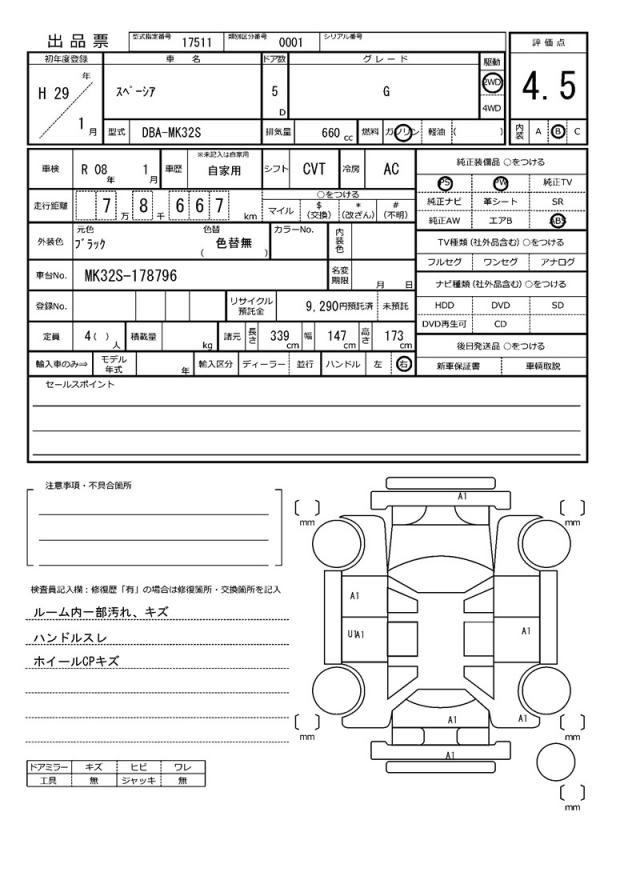 出品票 型式指定番号 17511 類別区分番号 0001 シリアル番号
評価点
4.5
内装 A B C
初年度登録 車名 ドア数 グレード 駆動
H 29 年 1 月 スペーシア 5 D G 2WD 4WD
型式 DBA-MK32S 排気量 660 cc 燃料 ガソリン 軽油 ( )
車検 R 08 年 1 月 車歴 ※未記入は自家用 自家用 シフト CVT 冷房 AC
走行距離 7 万 8 千 6 6 7 km ○をつける
マイル $ (交換) * (改ざん) # (不明)
外装色 元色 ブラック 色替 ( 色替無 ) カラーNo. 内装色
車台No. MK32S-178796 名変期限 月 日
登録No. リサイクル預託金 9,290円預託済 未預託
定員 4( ) 人 積載量 kg 諸元 長さ 339 cm 幅 147 cm 高さ 173 cm
輸入車のみ⇒ モデル年式 年 輸入区分 ディーラー 並行 ハンドル 左 右
純正装備品 ○をつける
PS PW 純正TV
純正ナビ 革シート SR
純正AW エアB ABS
TV種類(社外品含む) ○をつける
フルセグ ワンセグ アナログ
ナビ種類(社外品含む) ○をつける
HDD DVD SD
DVD再生可 CD
後日発送品 ○をつける
新車保証書 車輌取説
セールスポイント
注意事項・不具合箇所
検査員記入欄:修復歴「有」の場合は修復箇所・交換箇所を記入
ルーム内一部汚れ、キズ
ハンドルスレ
ホイールCPキズ
ドアミラー キズ ヒビ ワレ
工具 無 ジャッキ 無
A1
mm
mm
A1
U1A1
A1
A1
A1
mm
mm
A1
mm